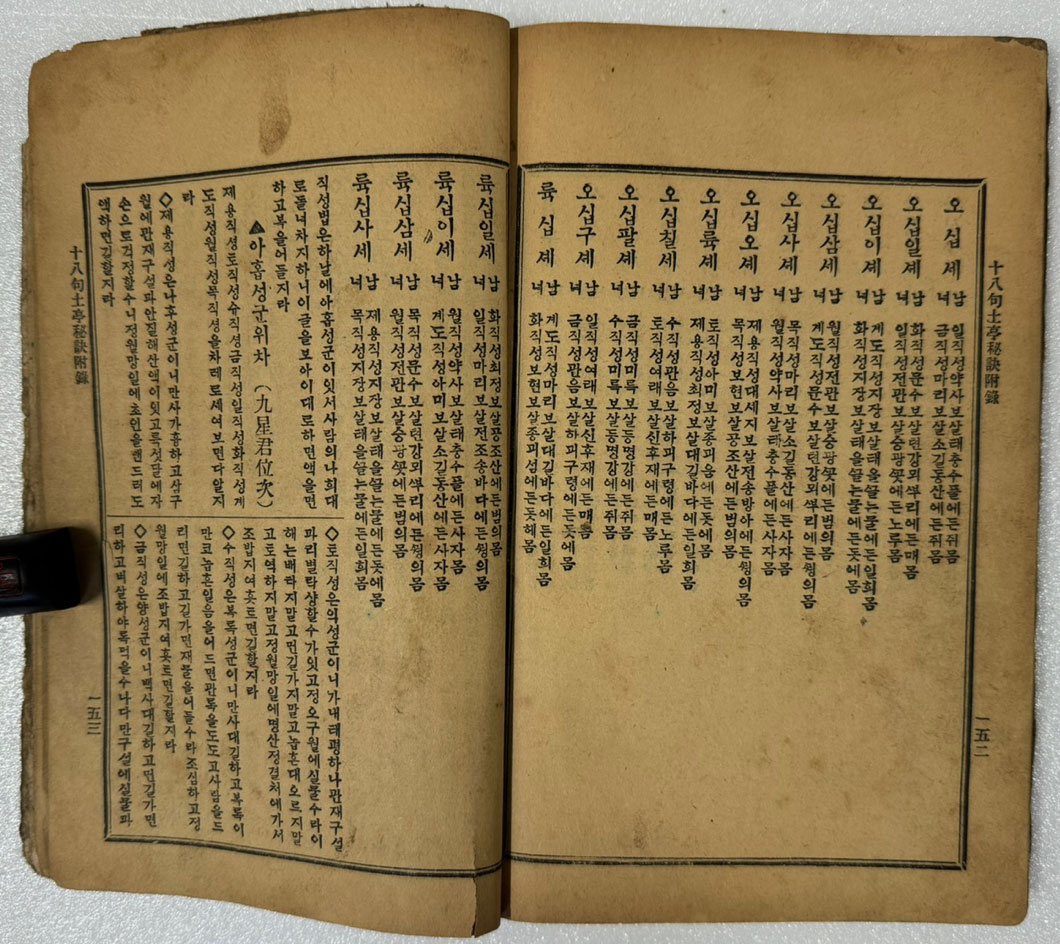 十八句土亭秘訣附錄
오십세 남 일직성약사보살태충수풀에든쥐몸
녀 금직성마리보살소길동산에든쥐몸
오십일세 남 화직성문수보살텬강외뿌리에든매몸
녀 일직성전관보살중광쏫에든노루몸
오십이세 남 계도직성지장보살태을끌는물에든일희몸
녀 화직성지장보살태을끌는물에든돗에몸
오십삼세 남 월직성전관보살중광쏫에든범의몸
녀 계도직성문수보살텬강외뿌리에든뀡의몸
오십사세 남 목직성마리보살소길동산에든사자몸
녀 월직성약사보살태충수풀에든사자몸
오십오세 남 제용직성대세지보살전송방아에든뀡의몸
녀 목직성보현보살공조산에든범의몸
오십륙세 남 토직성아미보살종괴윱에든돗에몸
녀 제용직성최정보살대길바다에든일희몸
오십칠세 남 수직성관음보살하괴구령에든노루몸
녀 토직성여래보살신후재에든매몸
오십팔세 남 금직성미륵보살등명강에든쥐몸
녀 수직성미륵보살등명강에든쥐몸
오십구세 남 일직성여래보살신후재에든매몸
녀 금직성관음보살하괴구령에든돗에몸
륙십세 남 계도직성마리보살대길바다에든일희몸
녀 화직성보현보살종괴섬에든돗해몸
一五二
十八句土亭秘訣附錄
륙십일세 남 화직성최정보살공조산에든범의몸
녀 일직성마리보살전조송바다에든뀡의몸
륙십이세 남 월직성약사보살태충수풀에든사자몸
녀 계도직성아미보살소길동산에든사자몸
륙십삼세 남 목직성문수보살텬강외뿌리에든뀡의몸
녀 월직성전관보살중광쏫에든범의몸
륙십사세 남 제용직성지장보살태을끌는물에든돗에몸
녀 목직성지장보살태을끌는물에든일희몸
직성법은하날에아홉성군이잇서사람의나희대
로돌녀차지하니이글을보아이대로하면액을면
하고복을어들지라
▲아홉성군위차 (九星君位次)
제용직성토직성슈직성금직성일직성화직성계
도직성월직성목직성을차례로세여보면다알지
라
◇제용직성은나후성군이니만사가흉하고사구
월에관재구설파안질해산액이잇고륙섯달에자
손으로걱정할수니정월망일에초인을맨드러도
액하면길할지라
◇토직성은의성군이니가내태평하나관재구설
파리별락샹할수가잇고정오구월에실물수라이
해는배타지말고먼길가지말고놉흔대오르지말
고로역하지말고정월망일에명산정결처에가서
조밥지여훗트면길할지라
◇수직성은복록성군이니만사대길하고복록이
만코놉흔일음을어드면관록을도도고사람을드
리면길하고길가면재물을어들수라조심하고정
월망일에조밥지여훗트면길할지라
◇금직성은양성군이니백사대길하고먼길가면
리하고벼살하야록먹을수나다만구설에실물파
一五三